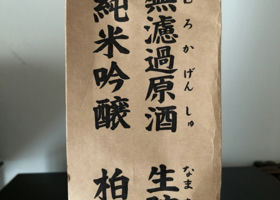 むろかげんしゅ
無濾過原酒
なま
生
純米吟醸
柏